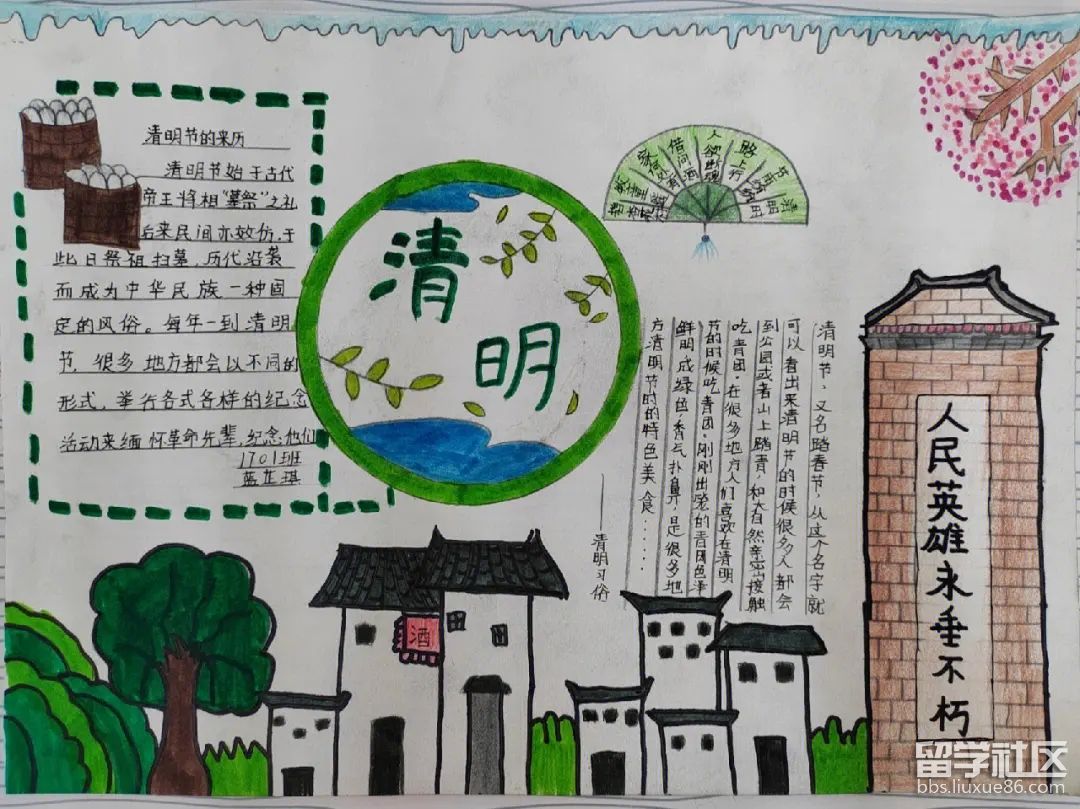 清明节的来历
清明节始于古代
帝王将相“墓祭”之礼
后来民间亦效仿,于
此日祭祖扫墓,历代沿袭
而成为中华民族一种固
定的风俗。每年一到清明
节,很多地方都会以不同的
形式,举行各式各样的纪念
活动来缅怀革命先辈,纪念他们
1701班
清
明
清明
时节雨纷纷
路上行
人欲断魂
借问酒
家何处有
牧童遥
指杏花村
清明节,又名踏春节,从这个名字就
可以看出来清明节的时候很多人都会
到公园或者山上踏青,和大自然亲密接触
吃青团。在很多地方人们喜欢在清明
节的时候吃青团。刚刚出笼的青团色泽
鲜明成绿色,香气扑鼻,是很多地
方清明节的的特色美食......
——清明习俗
酒
人民英雄永垂不朽
留学社区
bbs.liuxue86.com